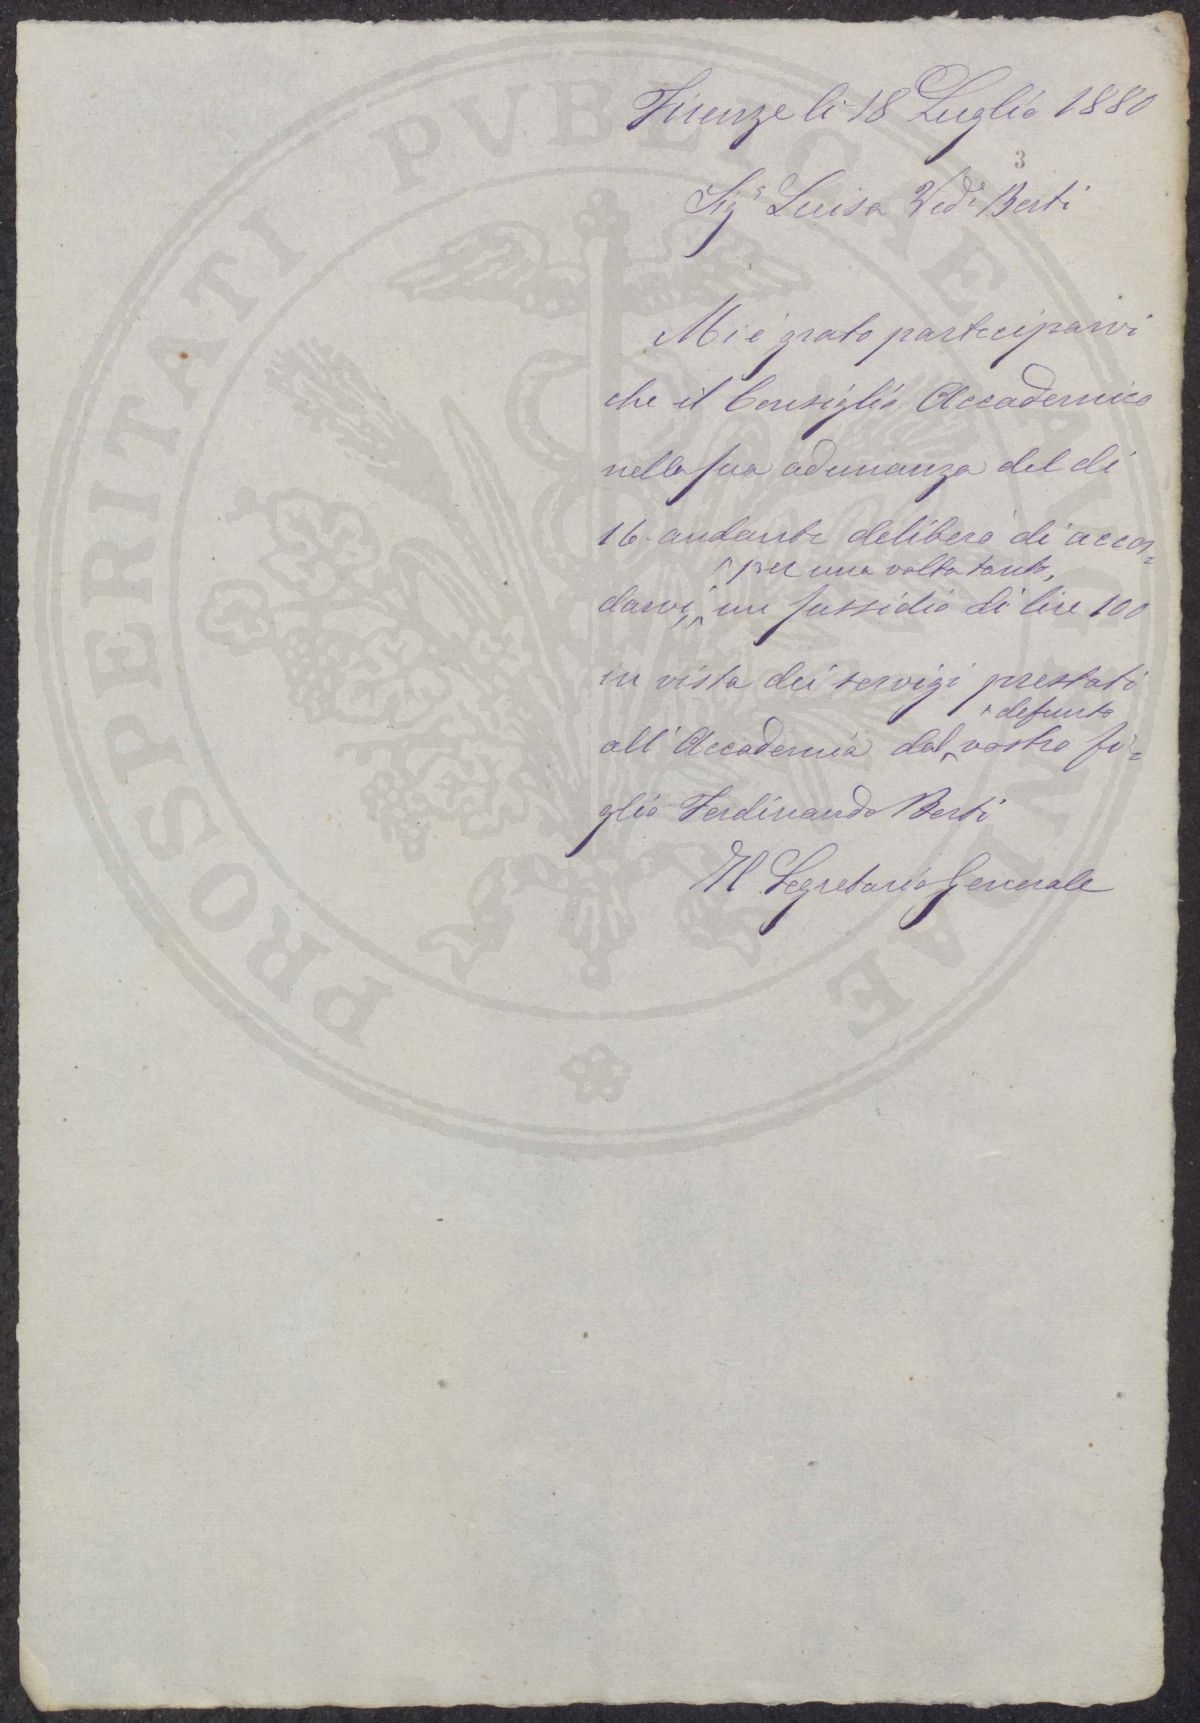 Firenze li 18 Luglio 1880
3
Sigª Luisa Vedª Berti
Mi è grato parteciparvi
che il Consiglio Accademico
nella sua adunanza del di
16. andante deliberò di accor=
per una volta tanto,
darvi, un sussidio di lire 100
in vista dei servigi prestati
defunto
all'Accademia dal vostro fi=
glio Ferdinando Berti
Il Segretario Generale
PROSPERITATI PVBLICAE AVGENDAE